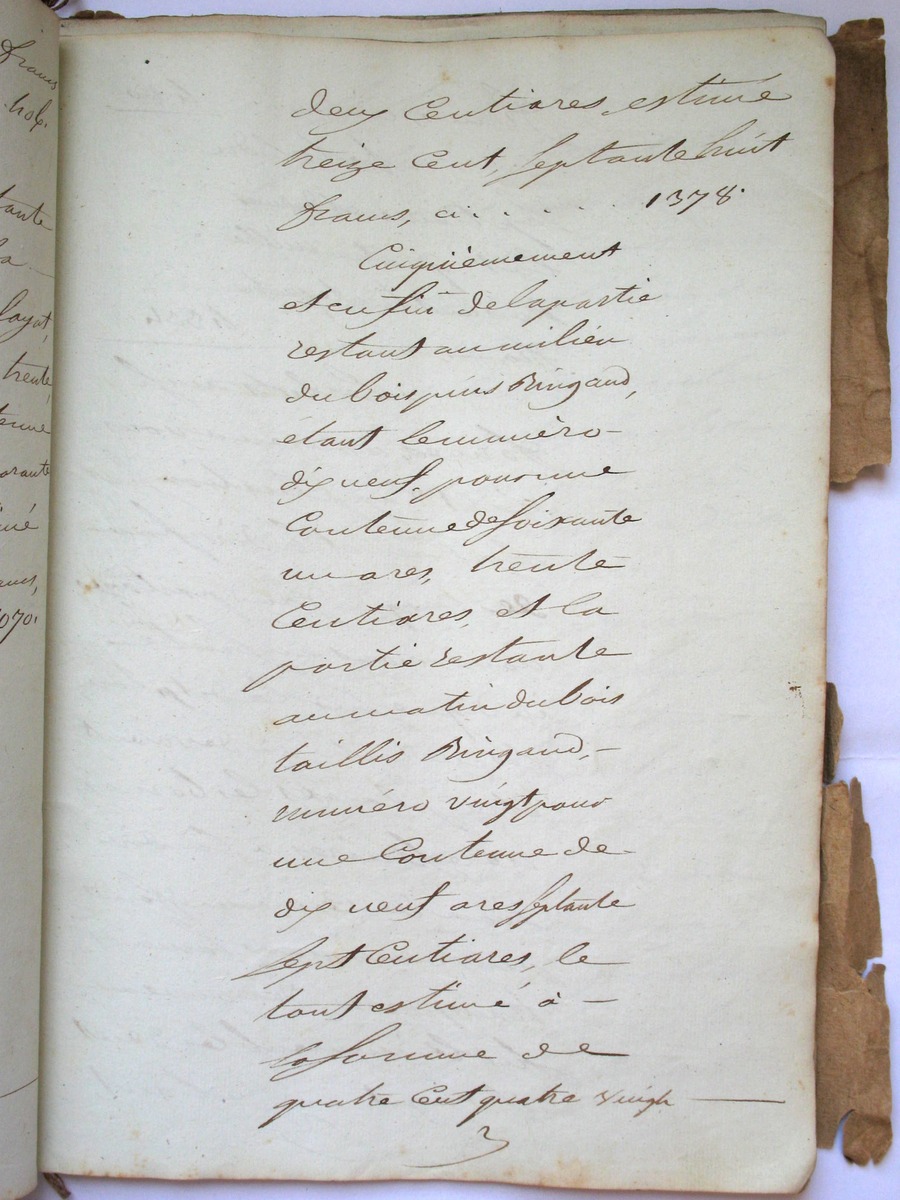 francs
tante
layat,
trente,
tenue
orante
imé
070.
deux Centiares, estimé
treize Cent, septante huit
francs, ci . . . . . 1378.
Cinquiemement
et enfin de la partie
restant au milieu
du bois Ringaud,
étant le numéro
dix neuf, pour une
Contenue de soixante
un ares, trente
Centiares, et la
partie restante
au matin du bois
taillis Ringaud,
numéro vingt pour
une Contenue de
dix neuf ares septante
sept Centiares, le
tout estimé à
la somme de
quatre Cent quatre vingt